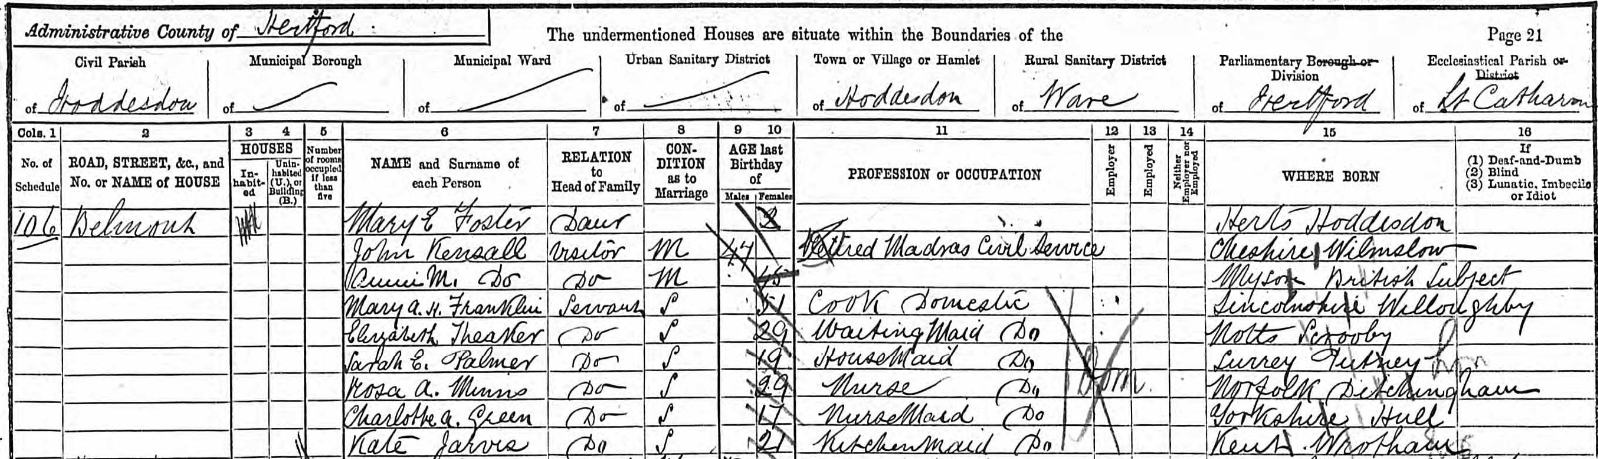 Administrative County of Hertford
The undermentioned Houses are situate within the Boundaries of the
Page 21
Civil Parish
of Hoddesdon
Municipal Borough
of
Municipal Ward
of
Urban Sanitary District
of
Town or Village or Hamlet
of Hoddesdon
Rural Sanitary District
of Ware
Parliamentary Borough or Division
of Hertford
Ecclesiastical Parish or District
of St Catharin
Cols. 1 2 3 4 5 6 7 8 9 10 11 12 13 14 15 16
No. of Schedule
ROAD, STREET, &c., and No. or NAME of HOUSE
HOUSES
In-habit-ed
Unin-habited (U.), or Building (B.)
Number of rooms occupied if less than five
NAME and Surname of each Person
RELATION to Head of Family
CON-DITION as to Marriage
AGE last Birthday of
Males Females
PROFESSION or OCCUPATION
Employer
Employed
Neither Employer nor Employed
WHERE BORN
If
(1) Deaf-and-Dumb
(2) Blind
(3) Lunatic, Imbecile or Idiot
106 Belmont Mary E Foster Daur 2 Herts Hoddesdon
John Kensall Visitor M 47 Retired Madras Civil Service Cheshire Wilmslow
M. Do Do M 45 British Subject
Mary A. H. Franklin Servant S 51 Cook Domestic Lincolnshire Willoughby
Elizabeth Theaker Do S 29 Waiting Maid Do Notts Scrooby
Sarah E. Palmer Do S 19 HouseMaid Do Surrey Putney
Rosa A. Minns Do S 29 Nurse Do Norfolk Ditchingham
Charlotte A. Green Do S 17 NurseMaid Do Yorkshire Hull
Kate Jarvis Do S 21 KitchenMaid Do Kent Wrotham